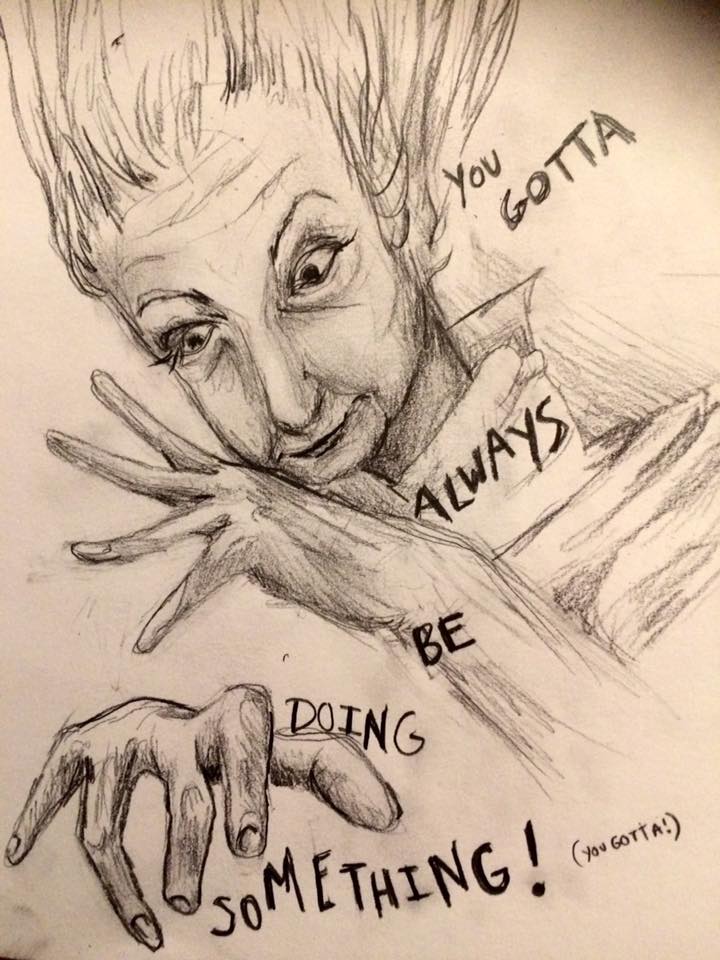 YOU GOTTA
ALWAYS
BE
DOING
SOMETHING! (YOU GOTTA!)